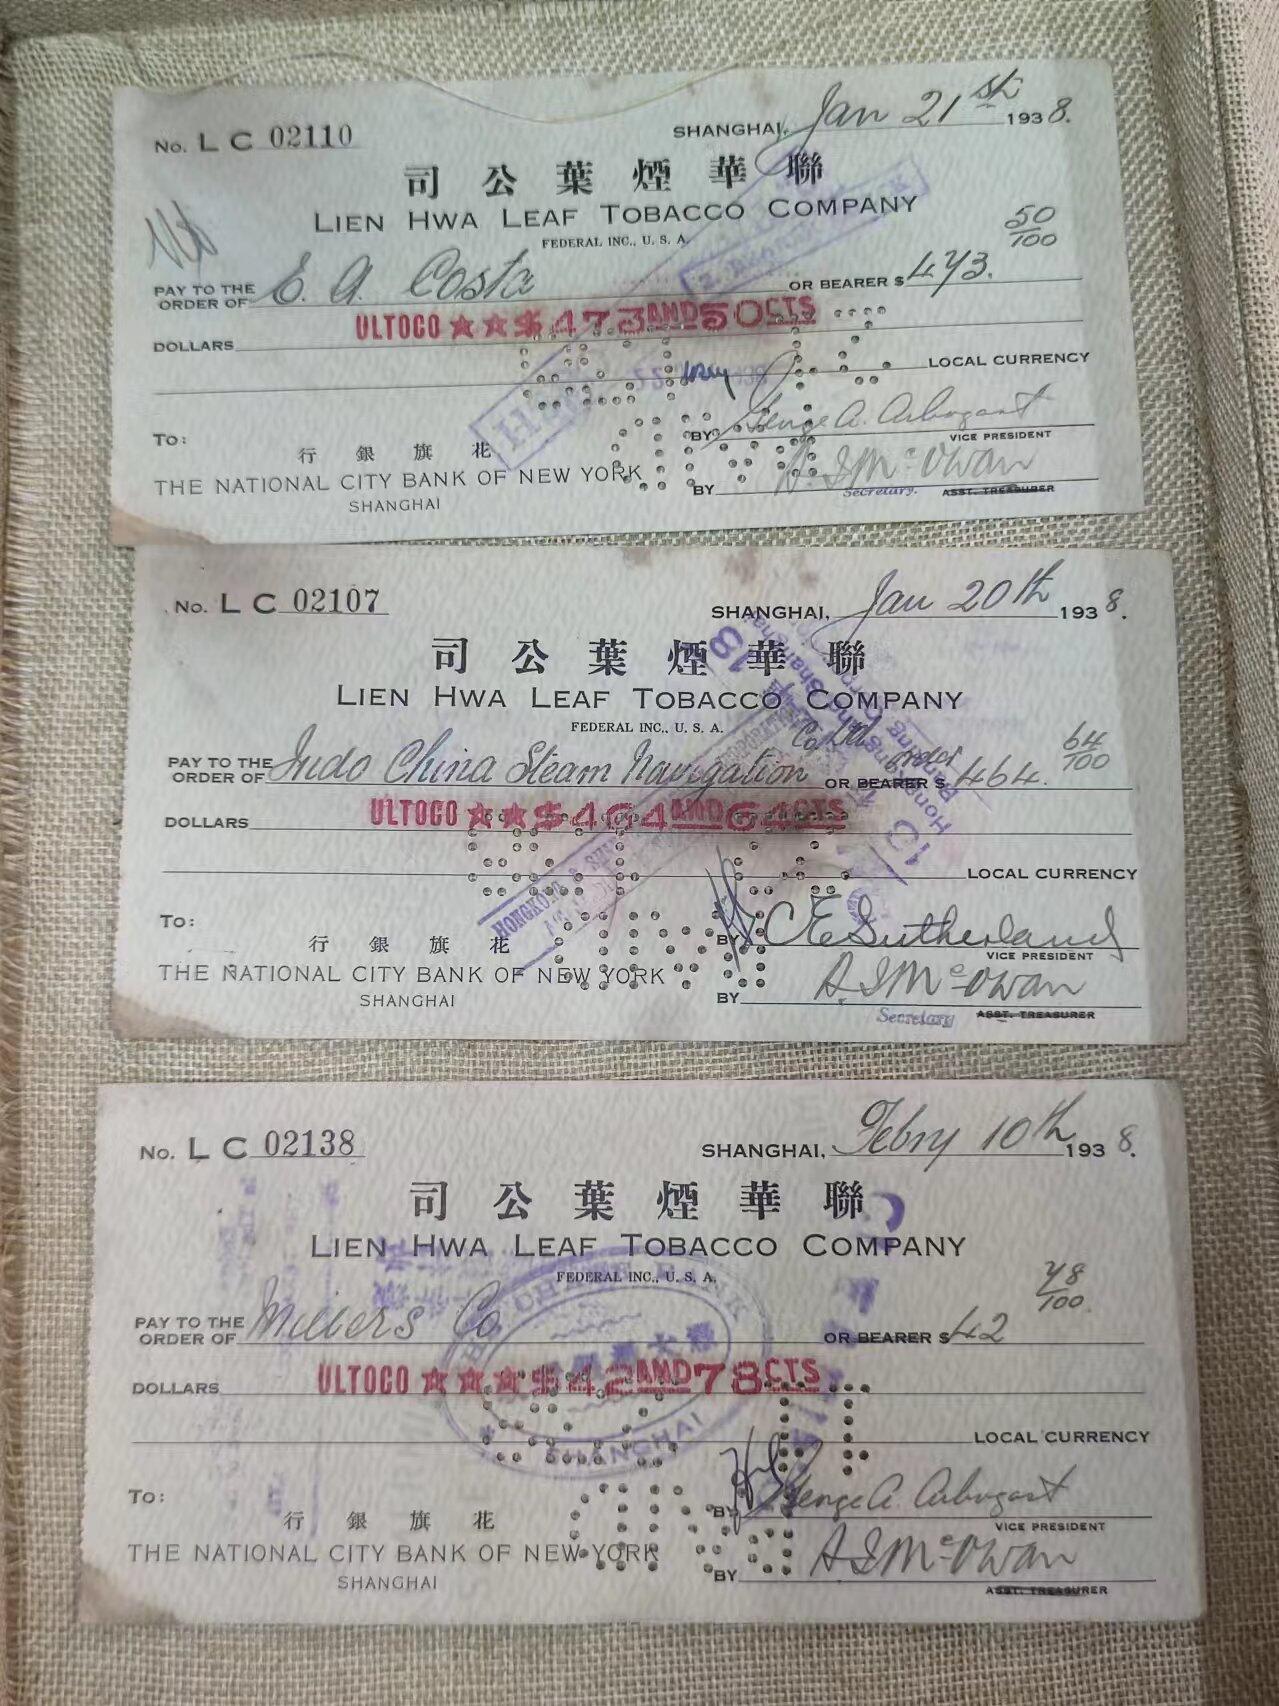 No. L C 02110
SHANGHAI, Jan 21st 1938.
司公葉煙華聯
LIEN HWA LEAF TOBACCO COMPANY
FEDERAL INC., U. S. A.
50/100
PAY TO THE ORDER OF E. A. Costa OR BEARER $ 473.
ULTOCO ★★$473AND50CTS
DOLLARS
LOCAL CURRENCY
TO:
行銀旗花
BY George A. Arbogast
VICE PRESIDENT
THE NATIONAL CITY BANK OF NEW YORK
BY A. S. McOwan
SHANGHAI
Secretary. ASST. TREASURER
No. L C 02107
SHANGHAI, Jan 20th 1938.
司公葉煙華聯
LIEN HWA LEAF TOBACCO COMPANY
FEDERAL INC., U. S. A.
64/100
PAY TO THE ORDER OF Indo China Steam Navigation Co Ltd order OR BEARER $ 464.
ULTOCO ★★$464AND64CTS
DOLLARS
LOCAL CURRENCY
HONGKONG &
Hong Shanghai Banking
TO:
行銀旗花
BY C E Sutherland
VICE PRESIDENT
THE NATIONAL CITY BANK OF NEW YORK
BY A. S. McOwan
SHANGHAI
Secretary ASST. TREASURER
No. L C 02138
SHANGHAI, Febry 10th 1938.
司公葉煙華聯
LIEN HWA LEAF TOBACCO COMPANY
FEDERAL INC., U. S. A.
78/100
PAY TO THE ORDER OF Millers Co OR BEARER $ 42
ULTOCO ★★★$42AND78CTS
DOLLARS
BANK
SHANGHAI
LOCAL CURRENCY
TO:
行銀旗花
BY George A. Arbogast
VICE PRESIDENT
THE NATIONAL CITY BANK OF NEW YORK
BY A. S. McOwan
SHANGHAI
ASST. TREASURER